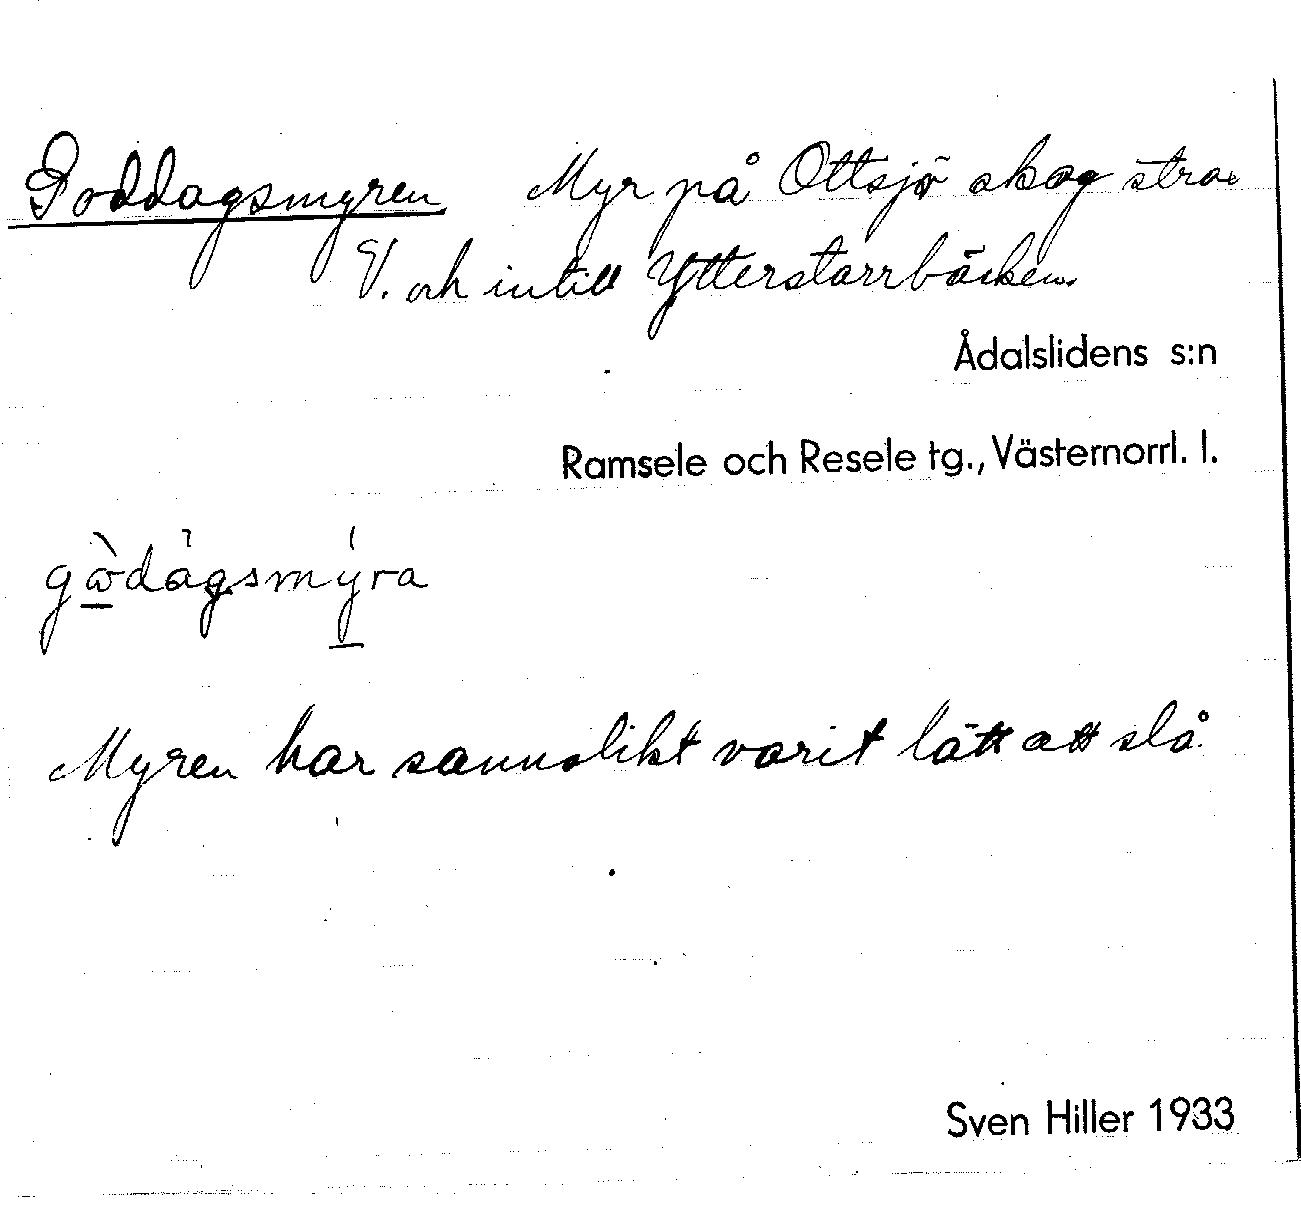 Goddagsmyren Myr på Ottsjö skog strax
V. och intill Ytterstarrbäcken.
Ådalslidens s:n
Ramsele och Resele tg., Västernorrl. l.
gòdàgsmýra
Myren har sannolikt varit lätt att slå
Sven Hiller 1933